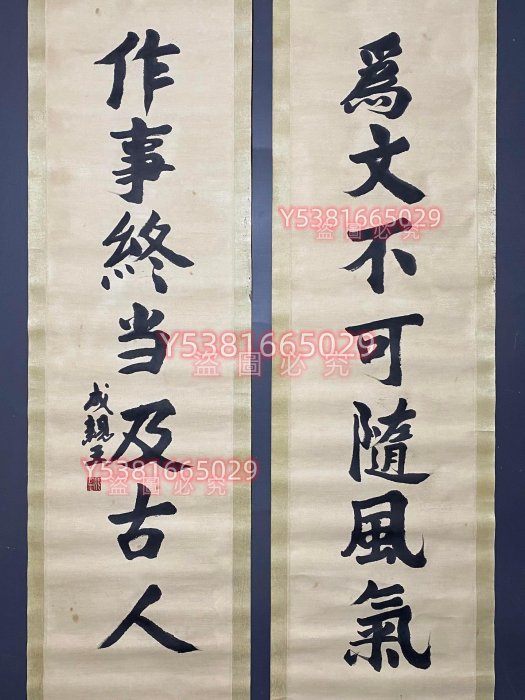 為文不可隨風氣
作事終当及古人
成親王
Y5381665029
盜圖必究
Y5381665029
盜圖必究
Y5381665029
盜圖必究